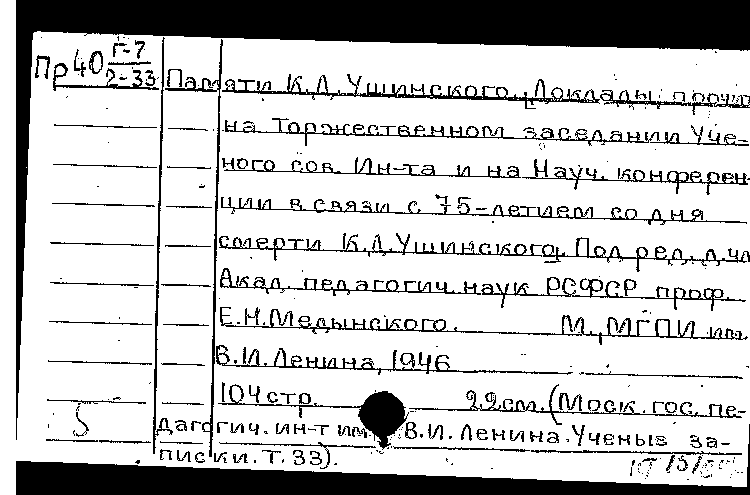 Пр40 Г-7
2-33
Памяти К.Д. Ушинского. [Доклады, прочит
на Торжественном заседании Уче-
ного сов. Ин-та и на Науч. конферен-
ции в связи с 75-летием со дня
смерти К.Д. Ушинского]. Под ред. д.чл.
Акад. педагогич. наук РСФСР проф.
Е.Н. Медынского. М., МГПИ им.
В.И. Ленина, 1946
104 стр. 22 см. (Моск. гос. пе-
5 дагогич. ин-т им. В.И. Ленина. Ученые за-
писки. Т. 33).